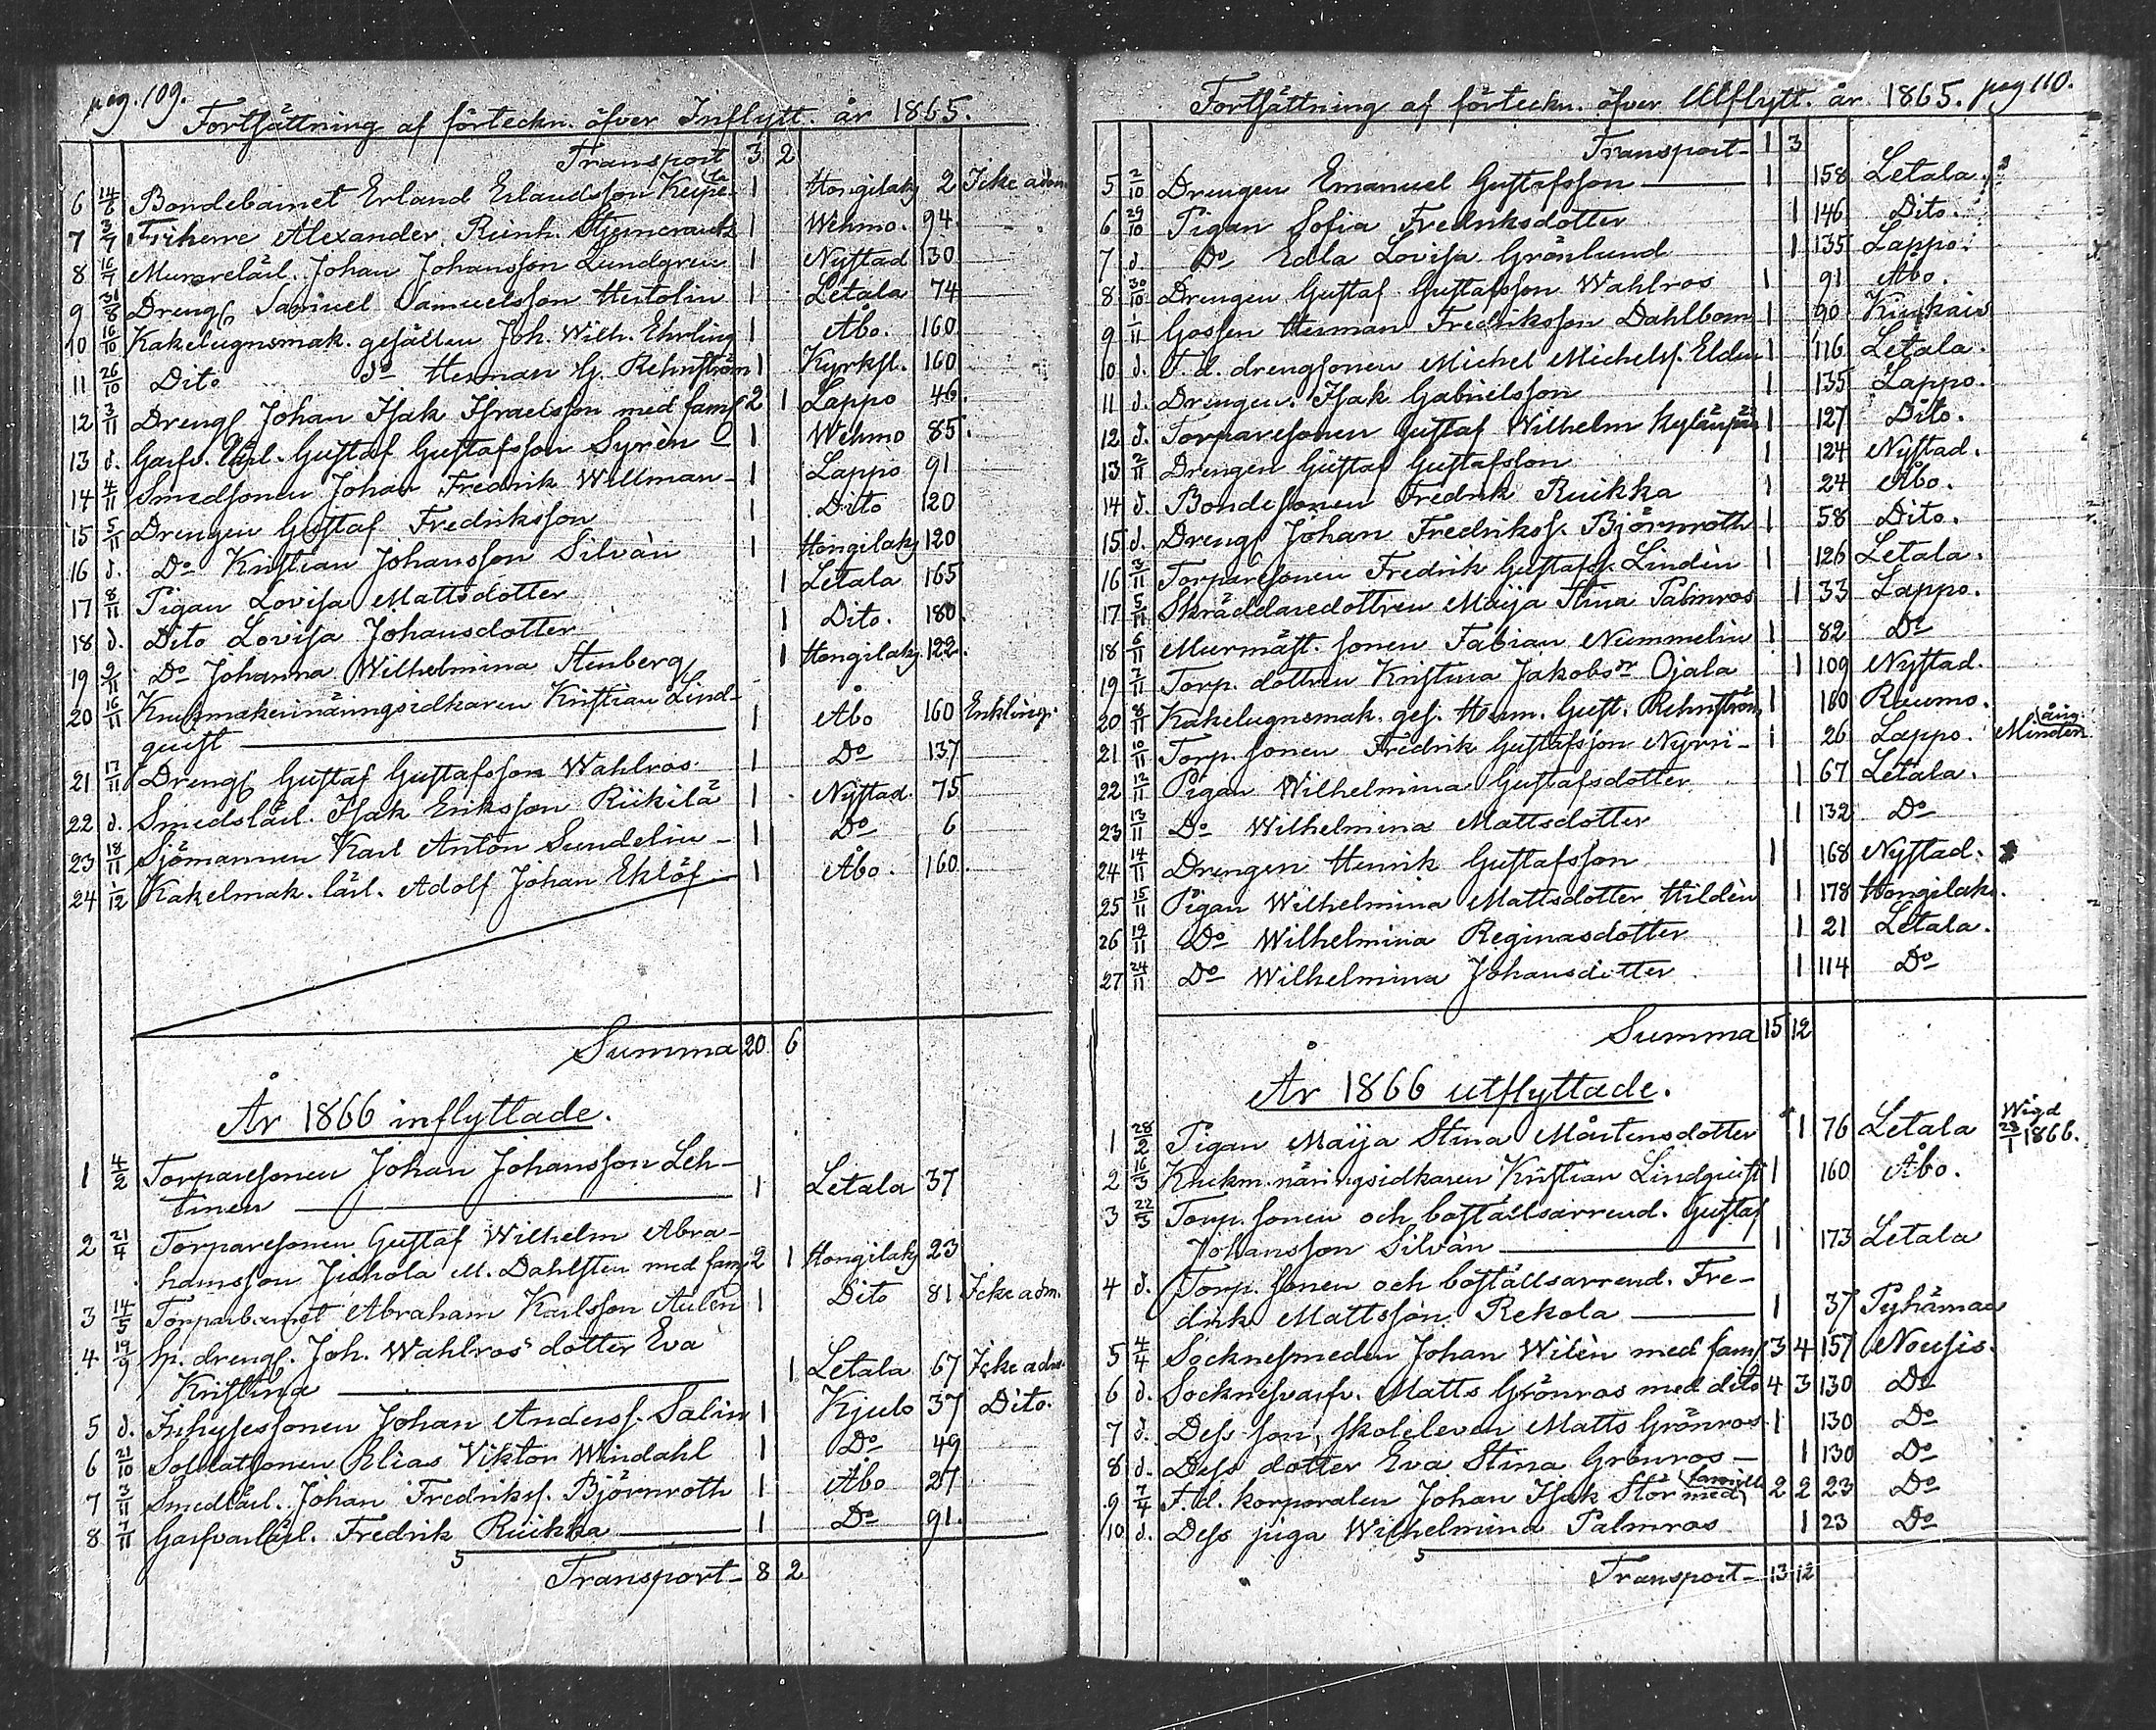 pag. 109.
Fortsättning af förteckn. öfver Inflytt. år 1865.
Transport 3 2
6 14/6 Bondebarnet Erland Erlandsson 1 Hongilaks 2 Icke adm.
7 3/7 Friherre Alexander Reinh. 1 Wehmo. 94.
8 16/7 Murarelärl. Johan Johansson Lundgren 1 Nystad 130
9 31/8 Drengs. Samuel Samuelsson Hertolin 1 Letala 74
10 16/10 Kakelugnsmak. gesällen Joh. Wilh. Ehrling 1 Åbo. 160
11 26/10 Dito do Herman G. Rehnström 1 Kyrksl. 160
12 3/11 Drengs. Johan Isak Israelsson med famj 2 1 Lappo 46.
13 d. Garfv. lärl. Gustaf Gustafsson Syrèn 1 Wehmo 85.
14 4/11 Smedsonen Johan Fredrik Willman 1 Lappo 91
15 5/11 Drengen Gustaf Fredriksson 1 Dito 120
16 d. Do Kristian Johansson Silvàn 1 Hongilaks 120
17 8/11 Pigan Lovisa Mattsdotter 1 Letala 165
18 d. Dito Lovisa Johansdotter 1 Dito. 180.
19 9/11 Do Johanna Wilhelmina Stenberg 1 Hongilaks. 122.
20 16/11 Knekmakerinäringsidkaren Kristian Lind-
quist 1 Åbo 160 Enkling.
21 17/11 Drengs. Gustaf Gustafsson Wahlros. 1 Do 137
22 d. Smedslärl. Isak Eriksson Riikilä 1 Nystad. 75
23 18/11 Sjömannen Karl Anton Sundelin 1 Do 6
24 1/12 Kakelmak. lärl. Adolf Johan Eklöf 1 Åbo. 160.
Summa 20 6
År 1866 inflyttade.
1 4/2 Torparesonen Johan Johansson Leh-
tinen 1 Letala 37
2 21/4 Torparesonen Gustaf Wilhelm Abra-
hamsson M. Dahlsten med famj 2 1 Hongilaks 23
3 14/5 Torparbarnet Abraham Karlsson Aulèn 1 Dito 81 Icke adm.
4 19/9 drengs. Joh. Wahlros' dotter Eva
Kristina 1 Letala 67 Icke adm.
5 d. Inhysessonen Johan Anderss. Salin 1 Kjulo 37 Dito.
6 21/10 Soldatsonen Elias Viktor Windahl 1 Do 49
7 3/11 Smedlärl. Johan Fredrikss. Björnroth 1 Åbo 27
8 7/11 Garfvarlärl. Fredrik Ruikka 1 Do 91.
Transport 8 2
pag 110.
Fortsättning af förteckn. öfver Utflytt. år 1865.
Transport 1 3
5 2/10 Drengen Emanuel Gustafsson 1 158 Letala.
6 29/10 Pigan Sofia Fredriksdotter 1 146 Dito.
7 d. Do Edla Lovisa Grönlund 1 135 Lappo.
8 30/10 Drengen Gustaf Gustafsson Wahlros 1 91 Åbo.
9 1/11 Gossen Herman Fredriksson Dahlbom 1 90 Kiukais
10 d. F. d. drengsonen Michel Michelss. Eldén 1 116 Letala.
11 d. Drengen Isak Gabrielsson 1 135 Lappo.
12 d. Torparesonen Gustaf Wilhelm Kylänpää 1 127 Dito.
13 2/11 Drengen Gustaf Gustafsson 1 124 Nystad.
14 d. Bondesonen Fredrik Ruikka 1 24 Åbo.
15 d. Drengs. Johan Fredrikss. Björnroth 1 58 Dito.
16 3/11 Torparesonen Fredrik Gustafss. Lindèn 1 126 Letala.
17 5/11 Skräddaredottren Maija Stina Palmros 1 33 Lappo.
18 6/11 Murmäst. sonen Fabian Nummelin 1 82 Do
19 7/11 Torp. dottren Kristina Jakobsdr Ojala 1 109 Nystad.
20 8/11 Kakelugnsmak. ges. Herm. Gust. Rehnström 1 160 Raumo.
21 10/11 Torp. sonen Fredrik Gustafsson Nyrri 1 26 Lappo. Minderårig
22 12/11 Pigan Wilhelmina Gustafsdotter 1 67 Letala.
23 13/11 Do Wilhelmina Mattsdotter 1 132 Do
24 14/11 Drengen Henrik Gustafsson 1 168 Nystad.
25 15/11 Pigan Wilhelmina Mattsdotter Hildèn 1 178 Hongilaks.
26 19/11 Do Wilhelmina Reginasdotter 1 21 Letala.
27 24/11 Do Wilhelmina Johansdotter 1 114 Do
Summa 15 12
År 1866 utflyttade.
1 28/2 Pigan Maija Stina Mårtensdotter 1 76 Letala Wigd 23/1 1866.
2 16/3 Knekm. näringsidkaren Kristian Lindquist 1 160 Åbo.
3 22/3 Torp. sonen och boställsarrend. Gustaf
Johansson Silvàn 1 173 Letala
4 d. Torp. sonen och boställsarrend. Fre-
drik Mattsson Rekola 1 37 Pyhämaa
5 4/4 Socknesmeden Johan Wilèn med famj 3 4 157 Nousis.
6 d. Socknesvarfv. Matts Grönros med dito 4 3 130 Do
7 d. Dess son, skoleleven Matts Grönros 1 130 Do
8 d. Dess dotter Eva Stina Grönros 1 130 Do
9 7/4 F. d. korporalen Johan Isak Stör med familj 2 2 23 Do
10 d. Dess piga Wilhelmina Palmros 1 23 Do
Transport 13 12